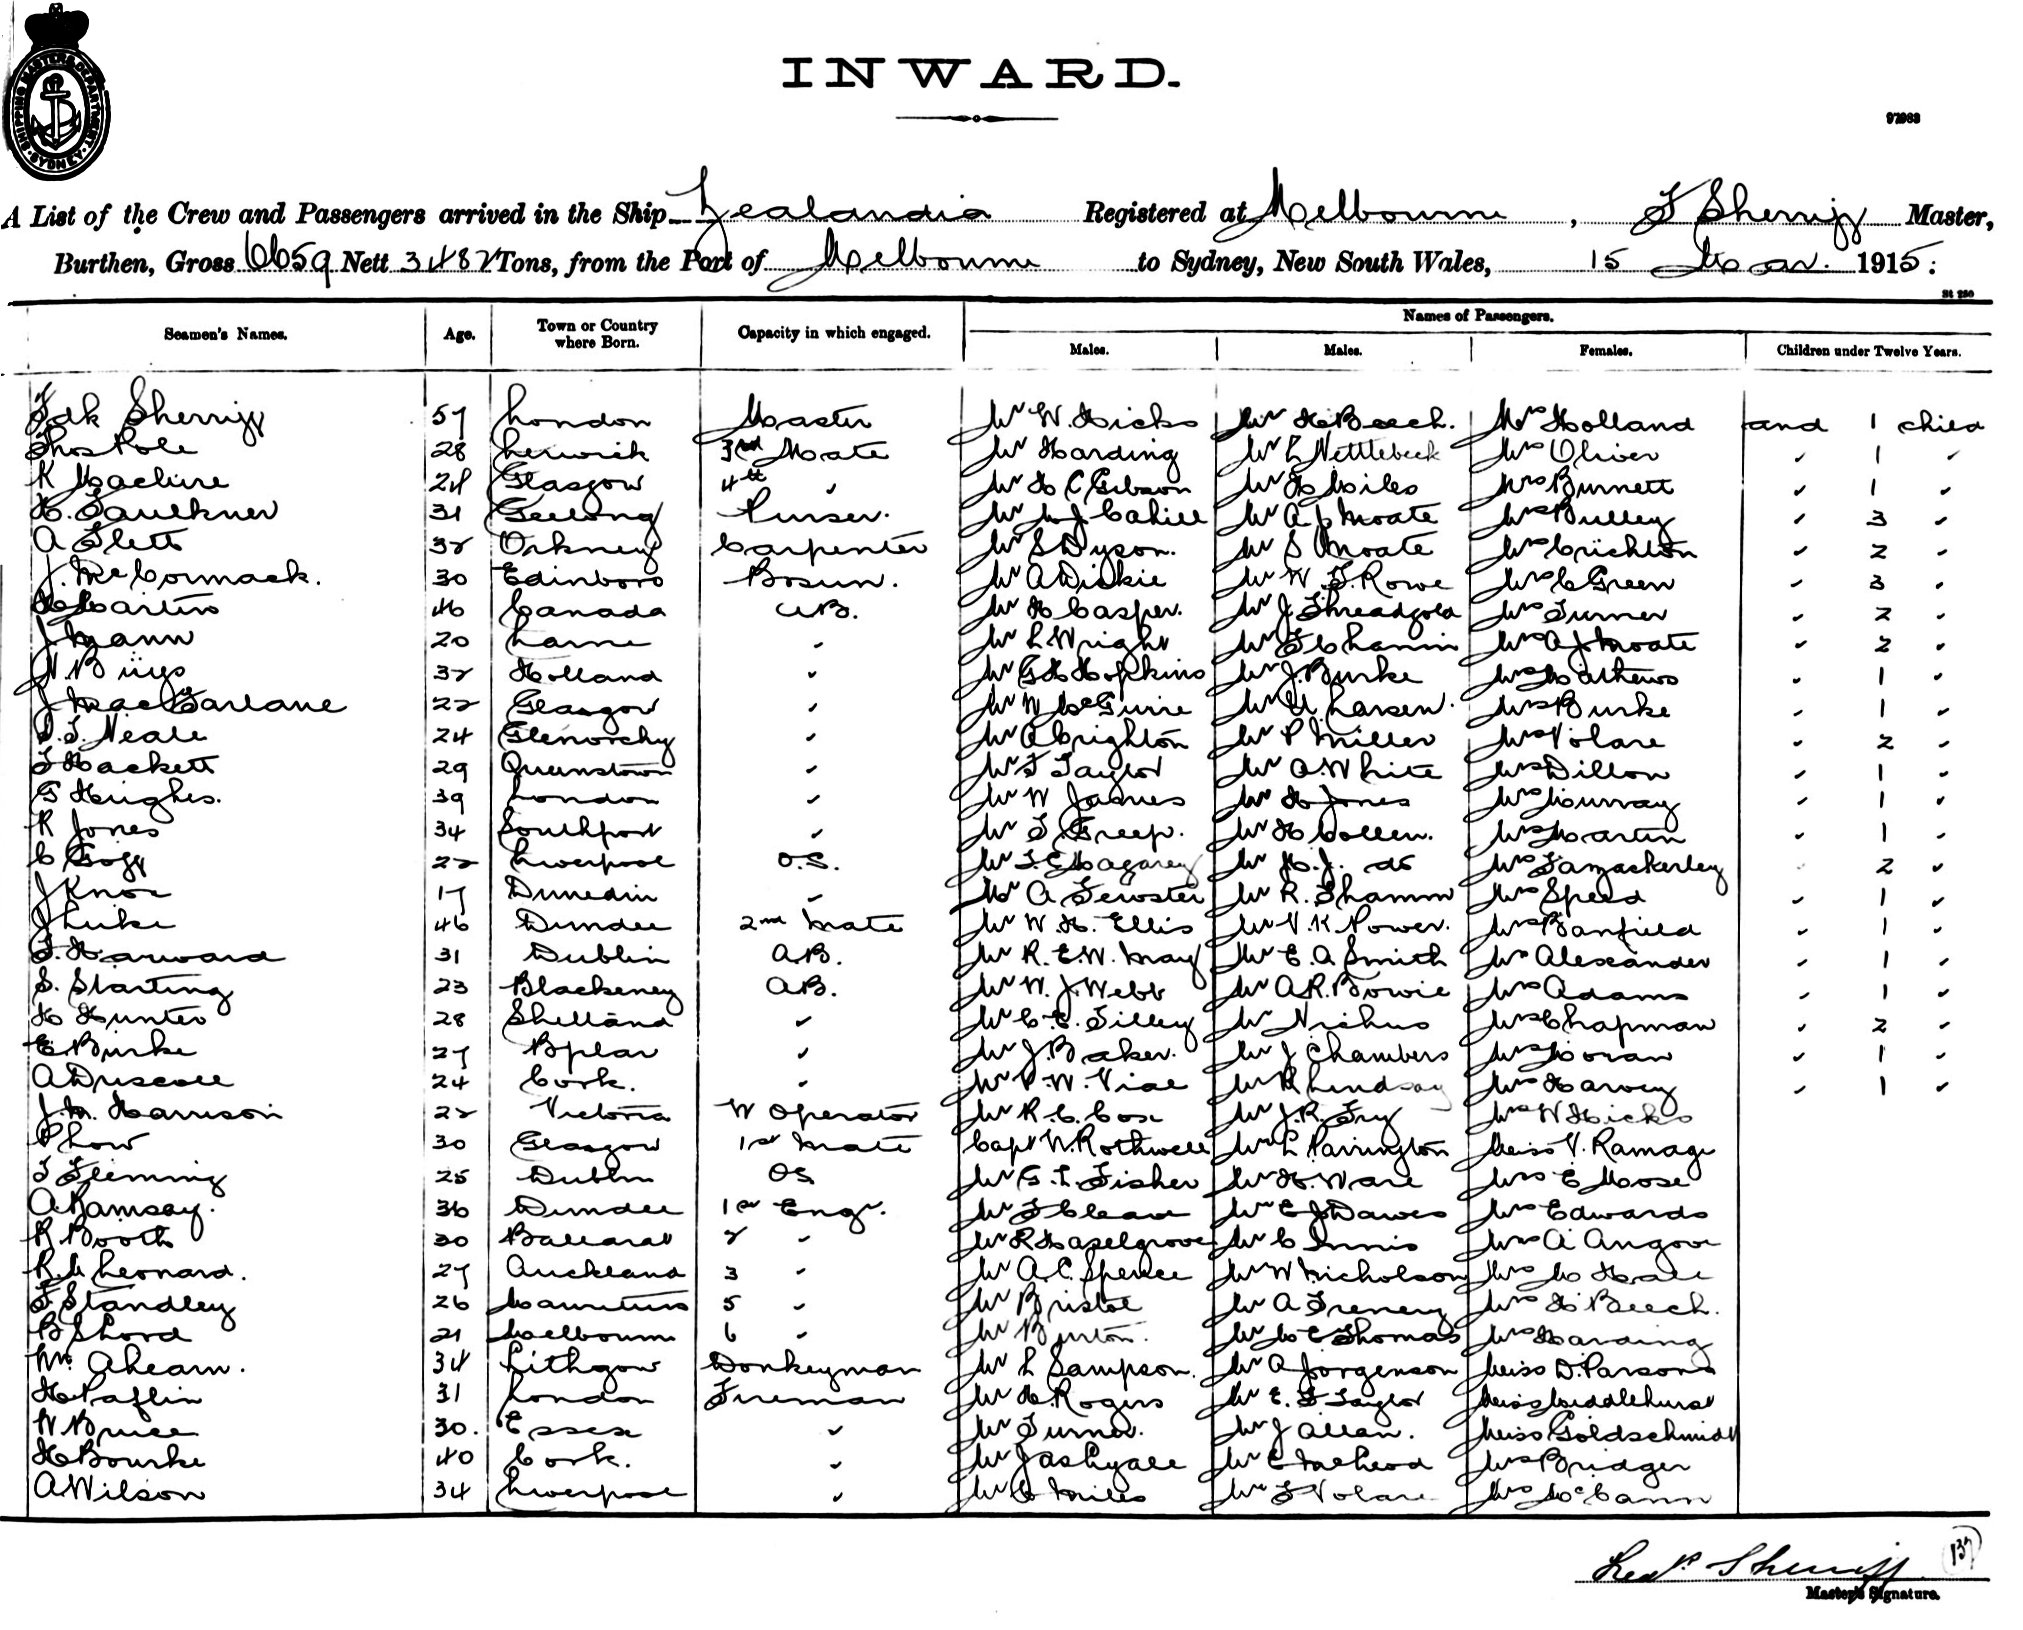 SHIPPING MASTERS DEPARTMENT SYDNEY
INWARD.
97983
A List of the Crew and Passengers arrived in the Ship Zealandia Registered at Melbourne, F Sherriff Master,
Burthen, Gross 6659 Nett 3482 Tons, from the Port of Melbourne to Sydney, New South Wales, 15 Mar. 1915:
St 250
Names of Passengers.
Seamen's Names. Age. Town or Country where Born. Capacity in which engaged. Males. Males. Females. Children under Twelve Years.
Fdk Sherriff 57 London Master Mr W. Hicks Mr H Beech. Mrs Holland and 1 child
Thos Pole 28 Lerwick 3rd Mate Mr Harding Mr L Nettlebeck Mrs Oliver " 1 "
K 24 Glasgow 4th " Mr H C Gibson Mr H Miles Mrs Burnett " 1 "
H. Faulkner 31 Geelong Purser. Mr M J Cahill Mr A J Moate Mrs Bulley " 3 "
A Flett 32 Orkney Carpenter Mr S Dyson. Mr S Moate Mrs Crichton " 2 "
J. McCormack. 30 Edinboro Bosun. Mr A Dickie Mr W. F. Rowe Mrs C Green " 3 "
H Martin 46 Canada AB. Mr H Casper. Mr J. Threadgold Mrs Turner " 2 "
J Mann 20 Larne " Mr L Wright Mr F Chanin Mrs A J Moate " 2 "
N. Buijs 32 Holland " Mr G H Hopkins Mr J. Burke Mrs Mathews " 1 "
J MacFarlane 22 Glasgow " Mr W McGuire Mr Larsen. Mrs Burke " 1 "
D. J. Neale 24 Glenorchy " Mr A Crighton Mr P Miller Mrs Volare " 2 "
J Hackett 29 Queenstown " Mr F Taylor Mr A. White Mrs Dillon " 1 "
G Hughes. 39 London " Mr W James Mr H Jones Mrs Murray " 1 "
R Jones 34 Southport " Mr J. Greep. Mr H Collen. Mrs Martin " 1 "
C Gogg 22 Liverpool O.S. Mr F. E Magarey Mr H. J. do Mrs Tamackerley 2 "
J Knox 17 Dunedin " Mr A Fewster Mr R. Thamm Mrs Speed " 1 "
J Luke 46 Dundee 2nd Mate Mr W. H. Ellis Mr V. K Power. Mrs Banfield " 1 "
F. Harward 31 Dublin A.B. Mr R. E. W. May Mr E. A Smith Mrs Alexander " 1 "
S. Starting 23 Blackeney A.B. Mr W. J. Webb Mr A R. Bowie Mrs Adams " 1 "
H Hunter 28 Shetland " Mr C. E. Tilley Mr Nichus Mrs Chapman " 2 "
E. Burke 27 " Mr J. Baker. Mr J Chambers Mrs Moran " 1 "
A Driscoll 24 Cork. " Mr V. W. Viae Mr R Lindsay Mrs Harvey " 1 "
J. M. Harrison 22 Victoria W Operator Mr R. C. Cox Mr J. R. Fry Mrs W Hicks
P Low 30 Glasgow 1st Mate Capt W. Rothwell Mr L Parrington Miss V. Ramage
J Fleming 25 Dublin OS Mr G. L. Fisher Mr H. Ware Mrs E Moose
A Ramsay. 36 Dundee 1st Engr. Mr F Cleave Mr E J Dawes Mrs Edwards
R Booth 30 Ballarat 2 " Mr R Haselgrove Mr C Innis Mrs A Angove
R. L Leonard. 27 Auckland 3 " Mr A. C. Spence Mr W Nicholson Mrs M Hall
F Standley 26 Mauritius 5 " Mr Bristol Mr A Trenery Mrs H Beech.
B Shord 21 Melbourne 6 " Mr Burton. Mr M E Thomas Mrs Harding
Wm Ahearn. 34 Lithgow Donkeyman Mr L Sampson. Mr A Jorgenson Miss D. Parsons
H Paflin 31 London Fireman Mr H. Rogers Mr E. F Taylor Miss Middlehurst
W Bruce 30. Essex " Mr Turner. Mr J Allan. Miss Goldschmidt
H Bourke 40 Cork. " Mr Jashyall Mr E McLeod Mrs Bridger
A Wilson 34 Liverpool " Mr C Miles Mr F Volare Mrs McCann
Fredk Sherriff 137
Master's Signature.